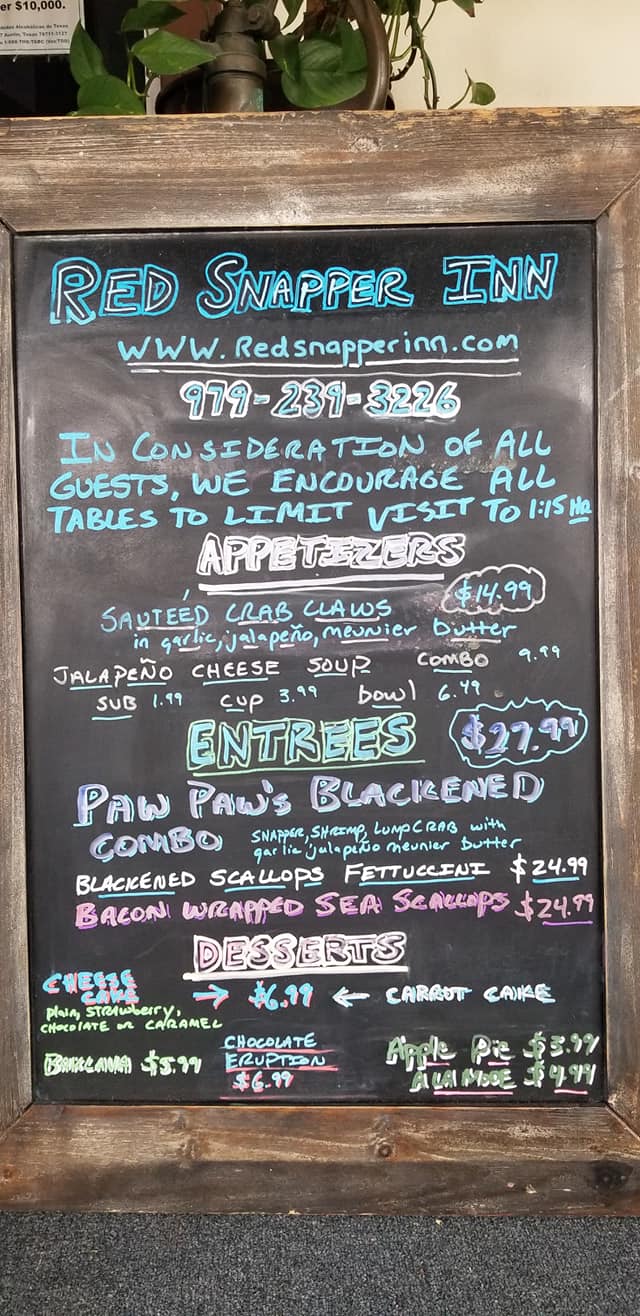 er $10,000.
RED SNAPPER INN
WWW.Redsnapperinn.com
979-239-3226
IN CONSIDERATION OF ALL
GUESTS, WE ENCOURAGE ALL
TABLES TO LIMIT VISIT TO 1:15 HR
APPETIZERS
$14.99
SAUTEÉD CRAB CLAWS
in garlic, jalapeño, meunier butter
JALAPEÑO CHEESE SOUP COMBO 9.99
SUB 1.99 CUP 3.99 bowl 6.49
ENTREES $27.99
PAW PAW'S BLACKENED
COMBO SNAPPER, SHRIMP, LUMP CRAB with
garlic jalapeño meunier butter
BLACKENED SCALLOPS FETTUCCINI $24.99
BACON WRAPPED SEA SCALLOPS $24.99
DESSERTS
CHEESE
CAKE → $6.99 ← CARROT CAKE
plain, STRAWberry,
CHOCOLATE OR CARAMEL
BAKLAVA $5.99
CHOCOLATE
ERUPTION
$6.99
Apple Pie $3.99
A LA MODE $4.99